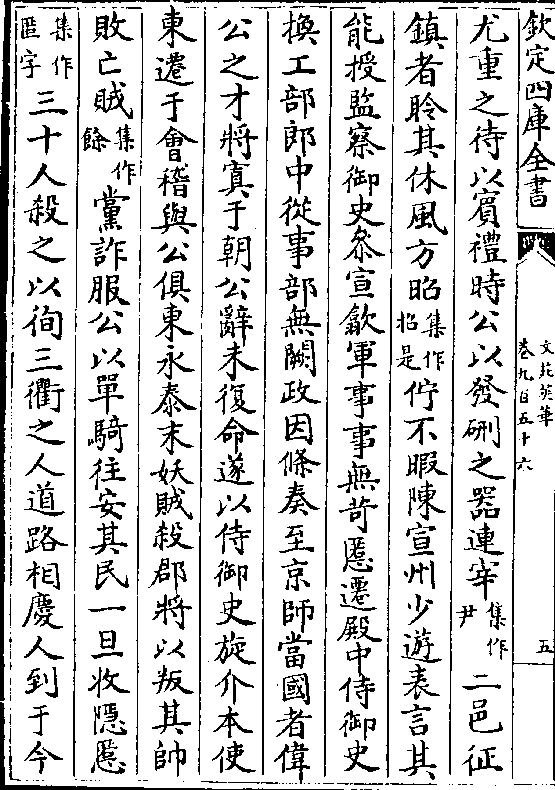 欽定四庫全書
文苑英華
卷九百五十六
五
尤重之待以賓禮時公以發硎之器連宰集作尹二邑征
鎮者聆其休風方昭集作招是佇不暇陳宣州少遊表言其
能授監察御史叅宣歙軍事事無苛慝遷殿中侍御史
換工部郎中從事部無闕政因條奏至京師當國者偉
公之才將寘于朝公辭未復命遂以侍御史旋介本使
東遷于會稽與公俱東永泰末妖賊殺郡將以叛其帥
敗亡賊集作餘黨詐服公以單騎往安其民一旦收隠慝
集作匿字三十人殺之以徇三衢之人道路相慶人到于今